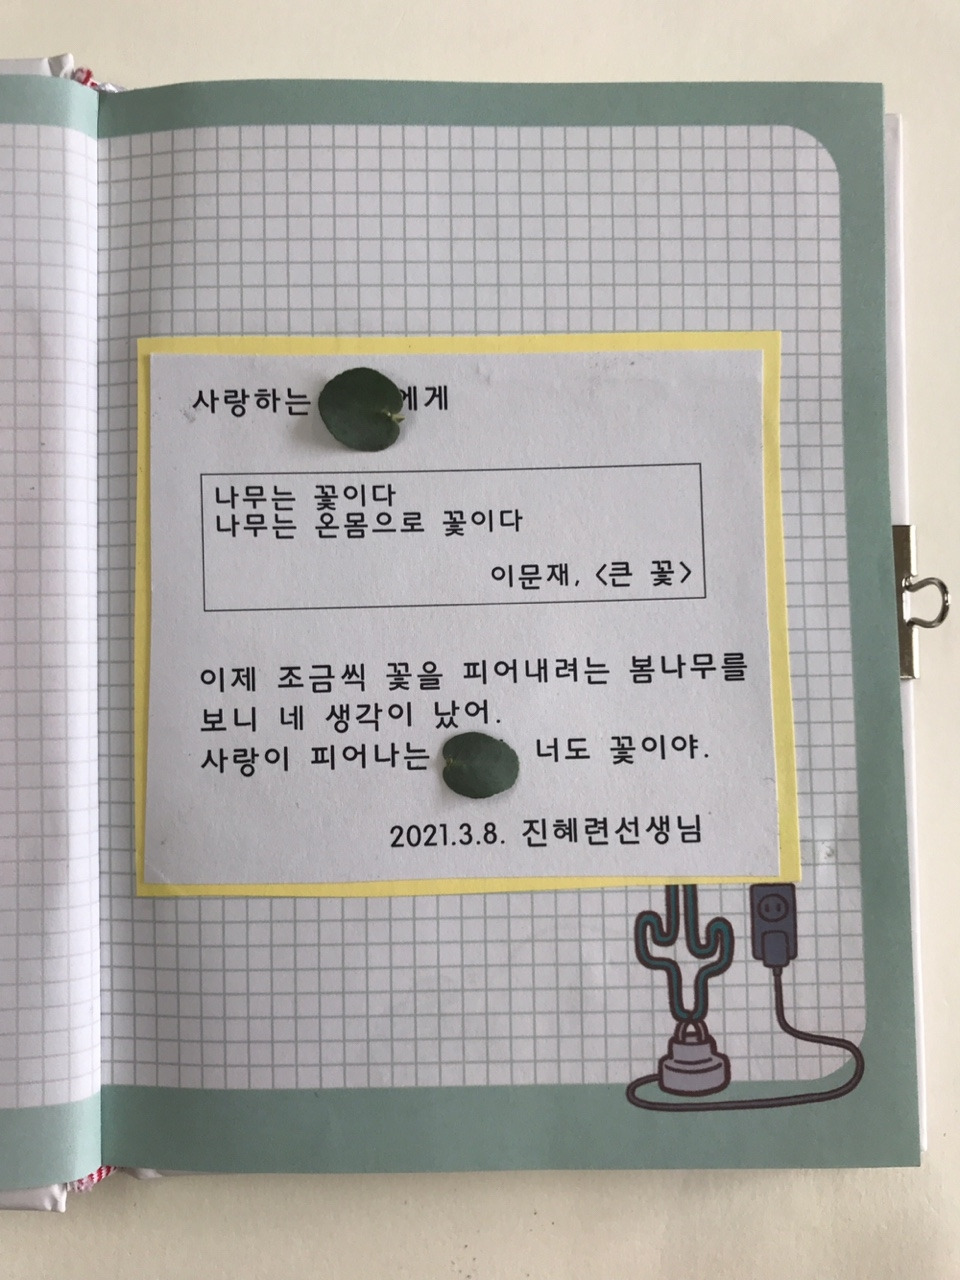 사랑하는 에게
나무는 꽃이다
나무는 온몸으로 꽃이다
이문재, <큰 꽃>
이제 조금씩 꽃을 피어내려는 봄나무를
보니 네 생각이 났어.
사랑이 피어나는 너도 꽃이야.
2021.3.8. 진혜련선생님